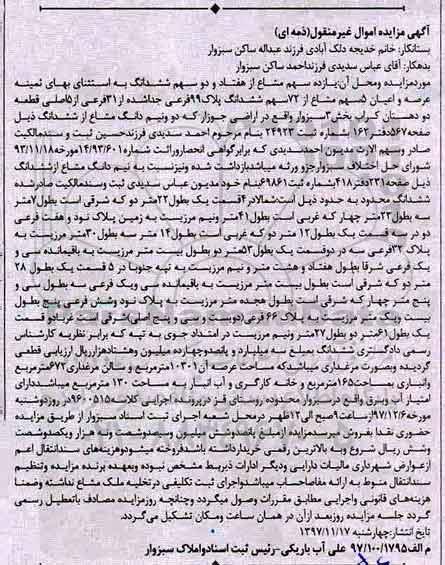 آگهی مزایده اموال غیرمنقول(ذمه ای)
بستانکار: خانم خدیجه دلک آبادی فرزند عبداله ساکن سبزوار
بدهکار: آقای عباس سدیدی فرزنداحمد ساکن سبزوار
موردمزایده ومحل آن:یازده سهم مشاع از هفتاد و دو سهم ششدانگ به استثنای بهای ثمینه
عرصه و اعیان ۵سهم مشاع از ۷۲سهم ششدانگ پلاک۹۹فرعی جداشده از۳۱فرعی از۵اصلی قطعه
دو دهستان کراب بخش۳سبزوار واقع در اراضی جوزار که دو ونیم دانگ مشاع از ششدانگ ذیل
صفحه۵۶۷دفتر۱۶۲ شماره ثبت ۲۴۹۲۳ بنام مرحوم احمد سدیدی فرزندحسین ثبت و سندمالکیت
صادر وسهم الارث مدیون احمدسدیدی که برابرگواهی انحصاروراثت شماره۱۴/۹۳/۶۰۱مورخه۹۳/۱۱/۱۸
شورای حل اختلاف سبزوارجزو ورثه میباشدبازداشت شده ونیزنسبت به نیم دانگ مشاع ازششدانگ
ذیل صفحه۲۳۱دفتر۴۱۸شماره ثبت۶۹۸۶۱بنام خود مدیون عباس سدیدی ثبت وسندمالکیت صادرشده
ششدانگ محدود به حدود ذیل است:شمالادر۴قسمت یک بطول۲۲متر دو که شرقی است بطول۷متر
سه بطول۲۳متر چهار که غربی است بطول۴۱متر ونیم مرزیست به زمین پلاک نود و هفت فرعی
دو در سه قسمت یک بطول۱۲ متر دو که غربی است بطول۱۴ متر سه بطول۳۰متر مرزیست به
پلاک ۳۲فرعی سه در دوقسمت یک بطول۵۳متر دو بطول بیست متر مرزیست به باقیمانده سی و
یک فرعی شرقا بطول هفتاد و هشت متر و نیم مرزیست به تپه جنوبا در ۵ قسمت یک بطول ۲۸
متر دو که شرقی است بطول بیست متر مرزیست به باقیمانده سی ویک فرعی سه بطول سی و
پنج متر چهار که شرقی است بطول هجده متر مرزیست به پلاک نود وشش فرعی پنج بطول
بیست ویک متر مرزیست به پلاک ۶۶ فرعی(دویست و سی و پنج اصلی)شرقی است غربادو قسمت
یک بطول۶۱متر دو بطول۲۷متر ونیم مرزیست در امتداد جوی به تپه که برابر نظریه کارشناس
رسمی دادگستری ششدانگ بمبلغ سه میلیارد و پانصدوچهارده میلیون وهشتادهزارریال ارزیابی قطعی
گردیده وبصورت مرغداری میباشدکه مساحت عرصه آن۱۰۳۰۱مترمربع و سالن مرغداری۶۷۲مترمربع
وانباری بمساحت۱۶۵مترمربع و خانه کارگری و آب انبار به مساحت ۱۳۰ مترمربع میباشددارای
امتیاز آب وبرق واقع در سبزوار محدوده روستای قز درپرونده اجرایی کلاسه۹۶۰۰۵۱۵در روزدوشنبه
مورخه۹۷/۱۲/۶ازساعت۹صبح الی۱۲ظهر درمحل شعبه اجرای ثبت اسناد سبزوار از طریق مزایده
حضوری نقدا بفروش میرسدمزایده ازمبلغ پانصدوشش میلیون وسیصدوشصت ونه هزار ویکصدوشصت
وشش ریال شروع وبه بالاترین قیمتی خریدارداشته باشدفروخته میشودوهزینه‌های سندانتقال اعم
ازعوارض شهرداری مالیات دارایی ودیگر ادارات ذیربط مشخص نبوده وبعهده برنده مزایده وتنظیم
سندانتقال منوط به ارائه مفاصاحساب میباشدواجرای ثبت تکلیفی درتخلیه ملک مشاع نداشته وضمنا
هزینه‌های قانونی واجرایی مطابق مقررات وصول میگردد وچنانچه روزمزایده مصادف باتعطیل رسمی
گردد جلسه مزایده روزبعد ازآن در همان ساعت ومکان تشکیل می‌گردد.
تاریخ انتشار:چهارشنبه ۱۳۹۷/۱۱/۱۷
م الف۹۷/۱۰۰/۱۷۹۵ علی آب باریکی-رئیس ثبت اسنادواملاک سبزوار